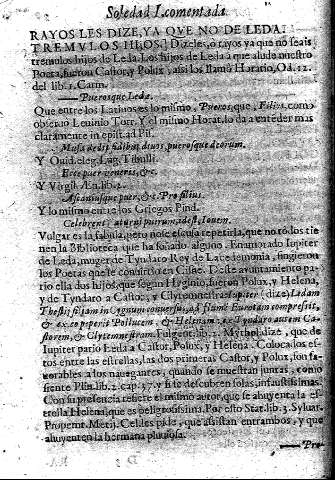 Soledad I. comentada.
RAYOS LES DIZE, YA QUE NO DE LEDA.
TREMULOS HIJOS: Dizeles, o rayos ya que no seais
tremulos hijos de Leda. Los hijos de Leda a que alude nuestro
Poeta, fueron Castor, y Polux, assi los llamò Horatio, Od. 12.
del lib. 1. Carm.
Puerosque Leda.
Que entre los Latinos es lo mismo, Pueros, que, Filios, como
observò Levinio Torr. Y el mismo Horat. lo da a entēder mas
claramente in epist. ad Pis.
Musa dedit fidibus divos, puerosque deorum.
Y Ouid. eleg. Lug. Tibulli.
Ecce puer veneris, &c.
Y Virgil. Æn. lib. 2.
Ascaniusque puer, &c. Pro filius.
Y lo mismo entre los Griegos Pind.
Vulgar es la fabula, pero no se escusa repetirla, que no todos tie
nen la Biblioteca que ha soñado alguno. Enamorado Iupiter
de Leda, muger de Tyndaro Rey de Lacedemonia, fingieron
los Poetas que se convirtio en Cisne. Deste ayuntamiento pa-
rio ella dos hijos, que segun Higinio, fueron Polux, y Helena,
y de Tyndaro a Castor, y Clytemnestra: Iupiter (dize) Ledam
Thestij filiam in Cygnum conversus, ad flumē Eurotam compressit,
& ex eo peperit Pollucem, & Helenam; ex Tyndaro autem Ca-
storem, & Clytemnestram. Fulgent. lib. 2. Mythol. dize, que de
Iupiter pariò Leda a Castor, Polux, y Helena. Colocados es-
tos entre las estrellas, las dos primeras Castor, y Polux, son fa-
vorables a los navegantes, quando se muestran juntas, como
siente Plin. lib. 2. cap. 37. y si se descubren solas, infaustissimas.
Con su presencia refiere el mismo autor, que se ahuyenta la es-
trella Helena, que es peligrosissima. Por esto Stat. lib. 3. Sylvar.
Propempt. Metij. Celles pide, que assistan entrambos, y que
ahuyenten la hermana pluviosa.
Pro-